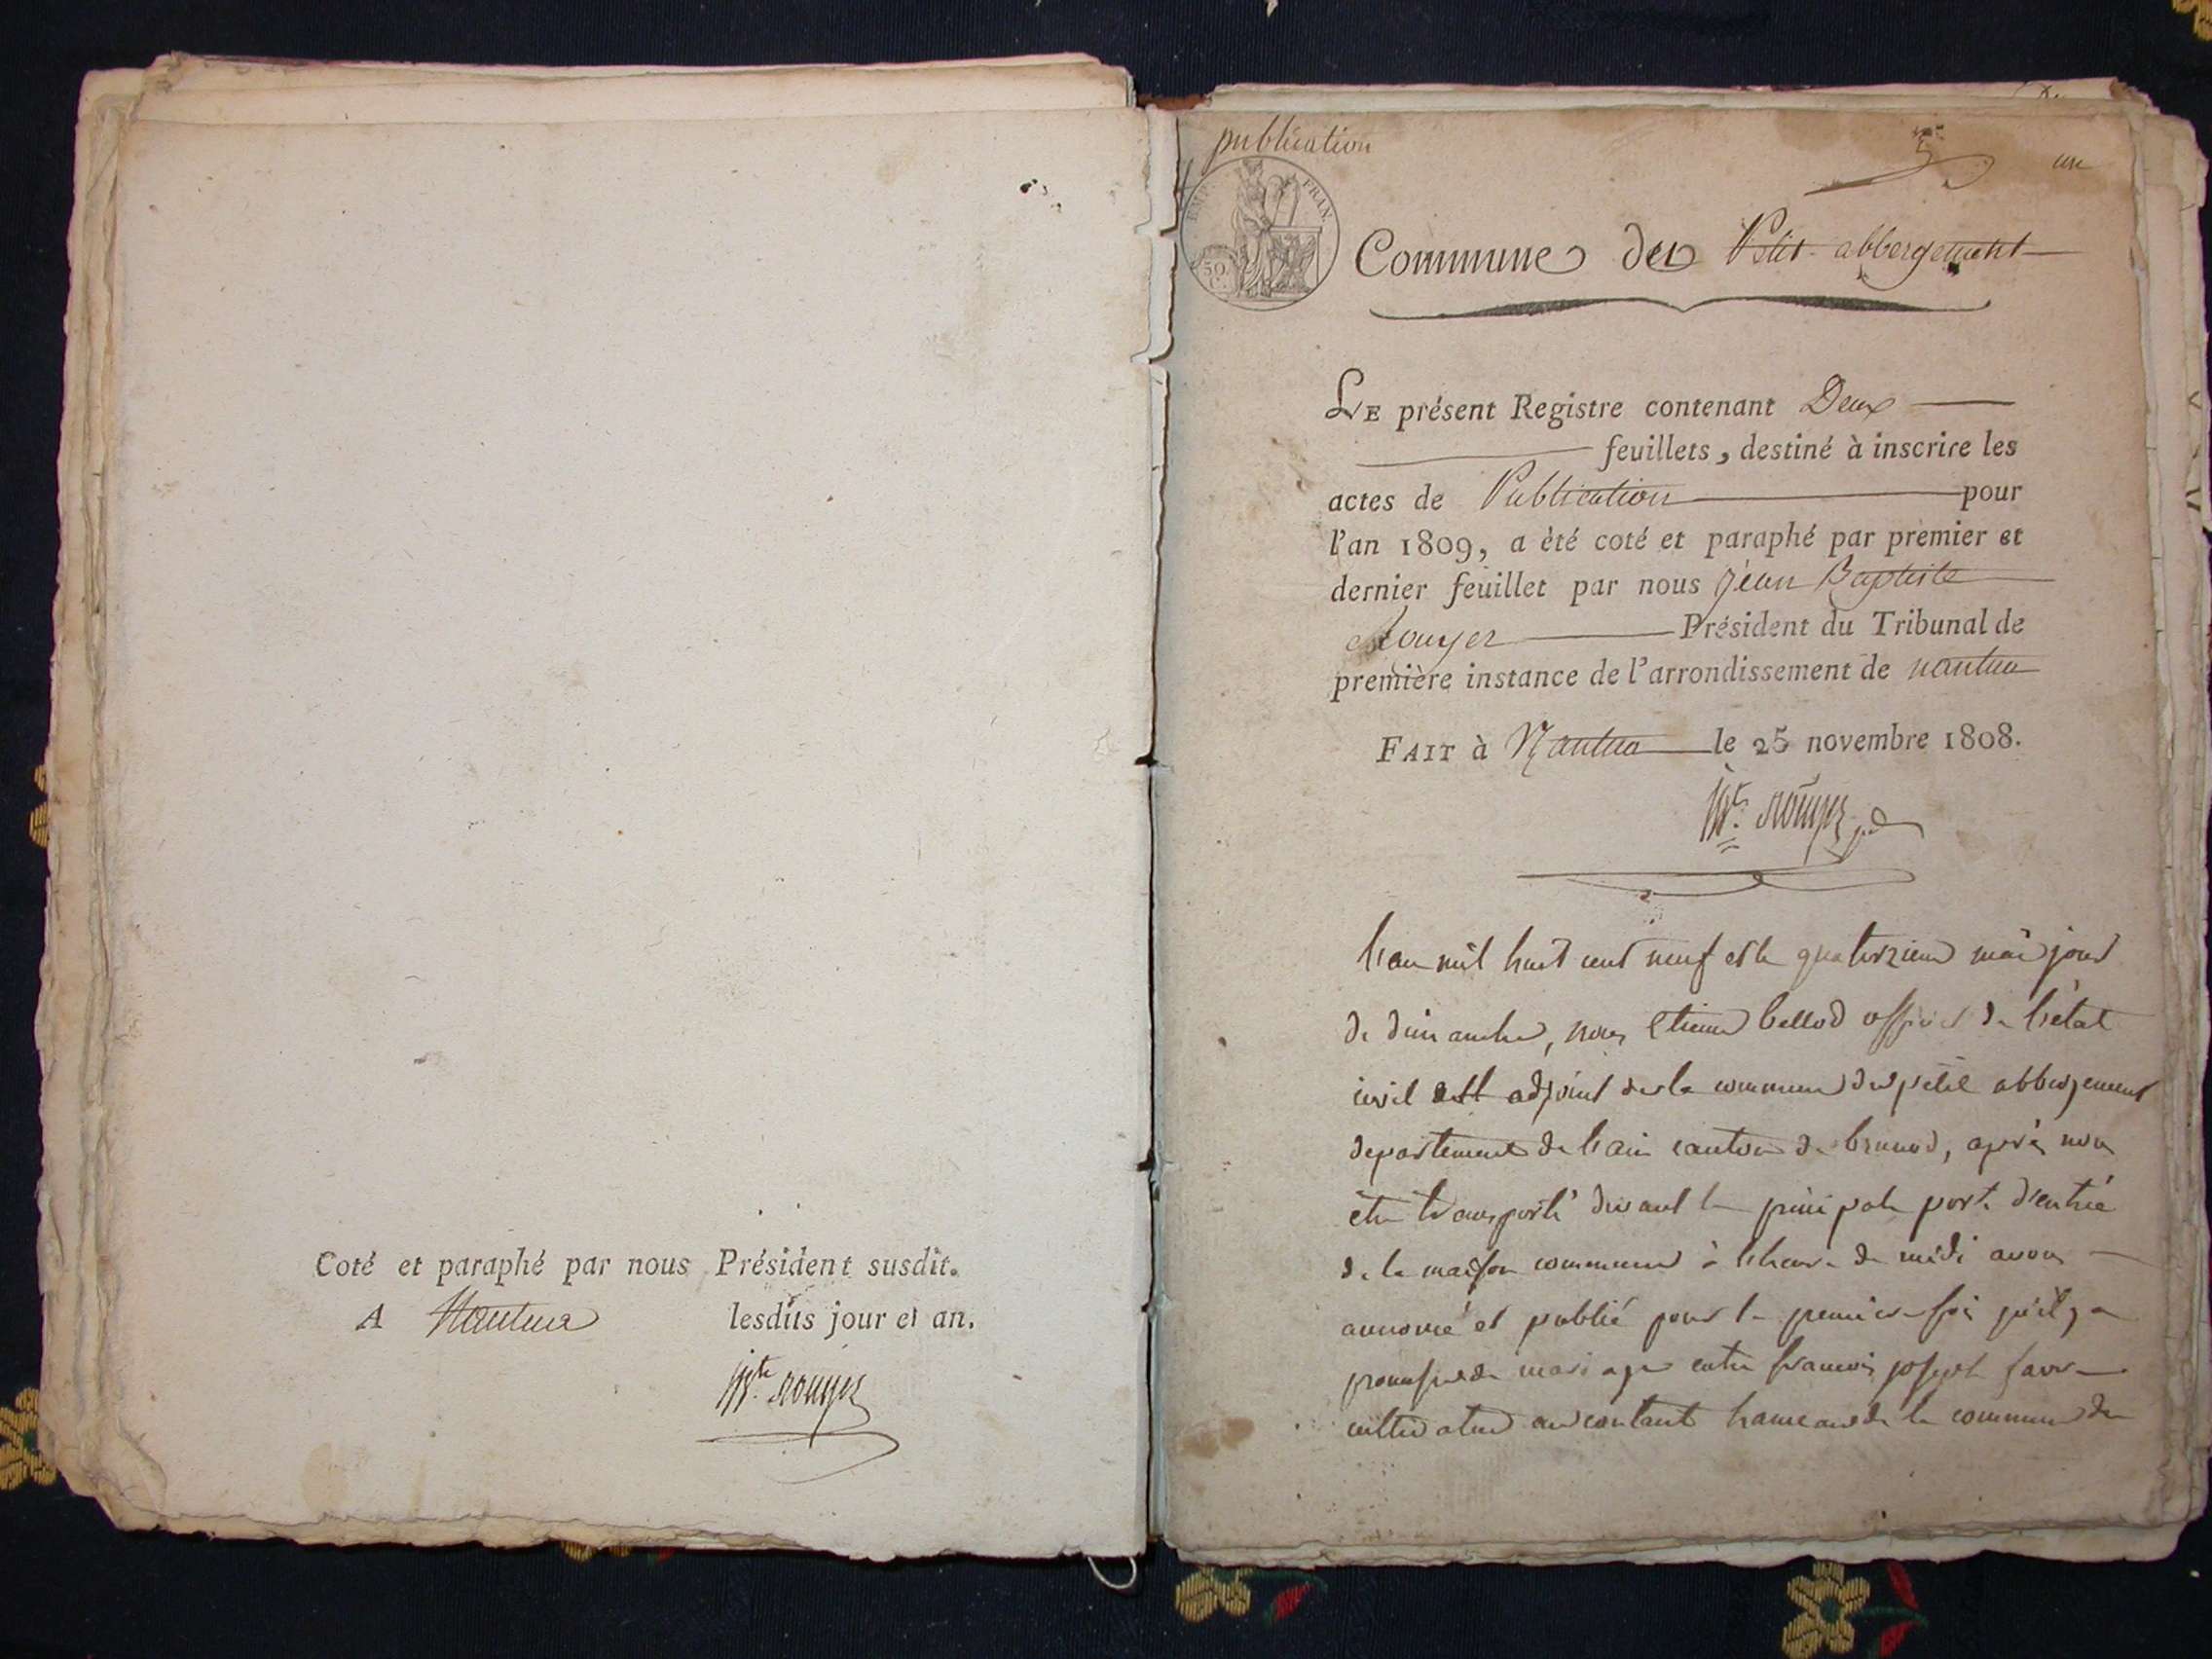 Coté et paraphé par nous Président susdit.
A Nantua lesdits jour et an.
Bte. Rouyer
publication
un
EMP. FRAN.
50
C.
Commune de Petit-abbergement
LE présent Registre contenant Deux
feuillets, destiné à inscrire les
actes de Publication pour
l'an 1809, a été coté et paraphé par premier et
dernier feuillet par nous Jean Baptiste
Rouyer Président du Tribunal de
première instance de l'arrondissement de nantua
FAIT à Nantua le 25 novembre 1808.
Bte. Rouyer
l'an mil huit cent neuf et le quatorzieme mai jour
de dimanche, nous Etienne bellod officier de l'état
civil adjoint de la commune du petit abbergement
departement de l'ain canton de brenod, après nous
etre transporté devant la principale porte d'entrée
de la maison commune à l'heure de midi avons
annoncé et publié pour la premiere fois qu'il y a
promesse de mariage entre francois joseph favre
cultivateur au contant hameau de la commune du